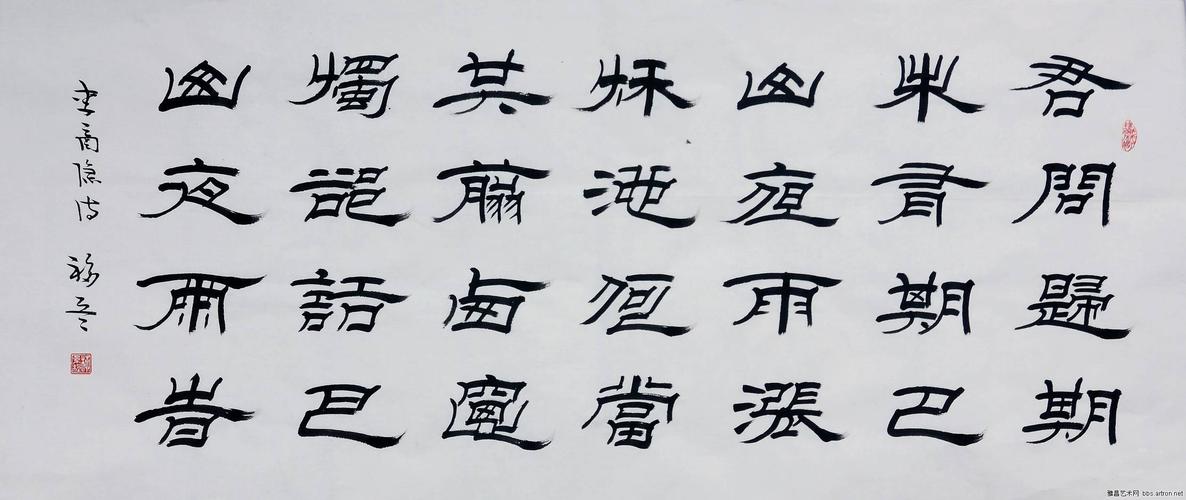 君問歸期
未有期巴
山夜雨漲
秋池何當
共翦西窗
燭卻話巴
山夜雨旹
李商隐诗
雅昌艺术网 bbs.artron.net